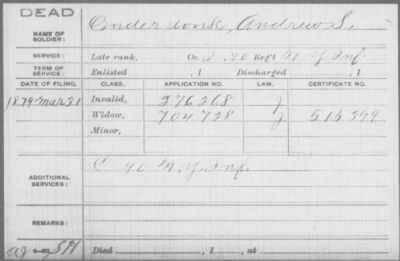 DEAD
NAME OF SOLDIER: Onderdonk, Andrew S.
SERVICE: Late rank, Co. I, 90 Reg't N Y Inf.
TERM OF SERVICE: Enlisted , 1 Discharged , 1
DATE OF FILING. CLASS. APPLICATION NO. LAW. CERTIFICATE NO.
1879 Mar 31 Invalid, 276268 J
Widow, 704728 J 515399
Minor,
ADDITIONAL SERVICES: C 90 N.Y. Inf.
REMARKS:
Died , 1 , at